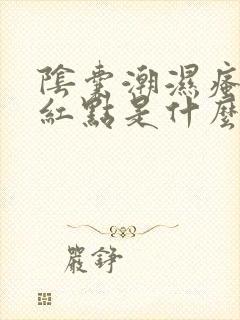 陰囊潮濕瘙
紅點是什麼
嚴錚